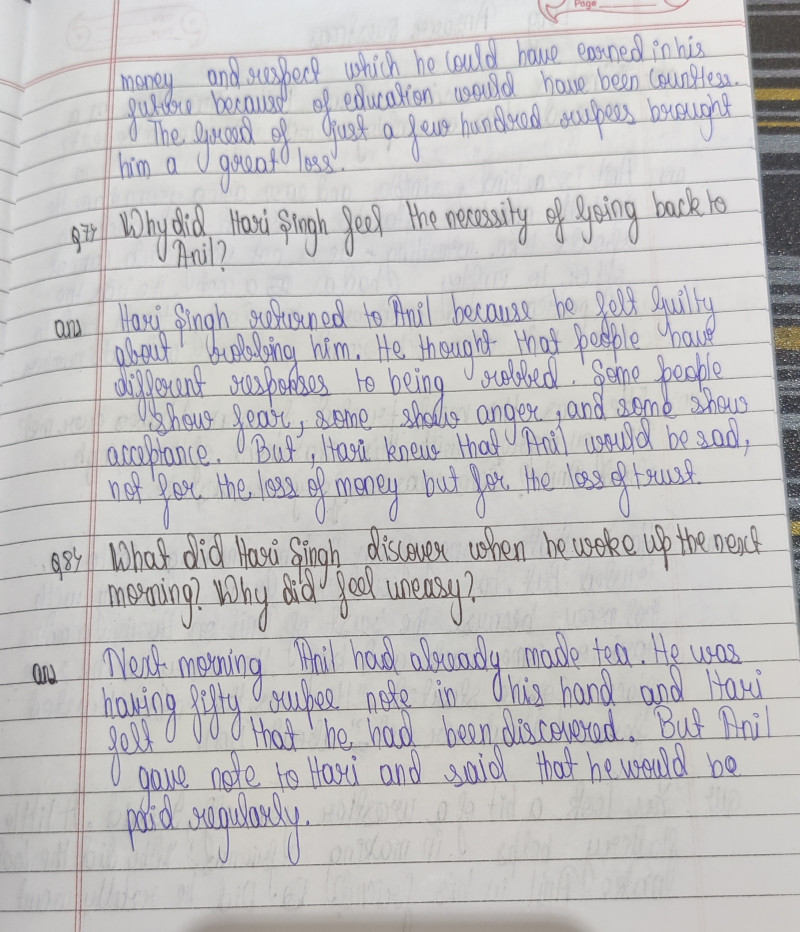 Page
money and respect which he could have earned in his
future because of education would have been countless.
The Greed of just a few hundred rupees brought
him a great loss.
Q7) Why did Hari Singh feel the necessity of going back to
Anil?
ans Hari Singh returned to Anil because he felt Guilty
about robbing him. He thought that people have
different responses to being robbed. Some people
show fear, some show anger, and some show
acceptance. But, Hari knew that Anil would be sad,
not for the loss of money but for the loss of trust.
Q8) What did Hari Singh discover when he woke up the next
morning? Why did feel uneasy?
ans Next morning Anil had already made tea. He was
having fifty rupee note in his hand and Hari
felt that he had been discovered. But Anil
gave note to Hari and said that he would be
paid regularly.